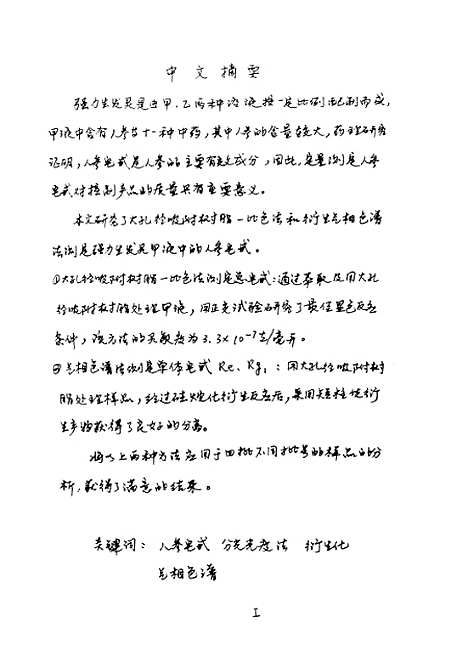 中文摘要
强力生发灵是由甲、乙两种溶液按一定比例配制而成,
甲液中含有人参等十一种中药,其中人参的含量较大,药理研究
证明,人参皂甙是人参的主要有效成分,因此,定量测定人参
皂甙对控制产品的质量具有重要意义。
本文研究了大孔径吸附树脂—比色法和衍生气相色谱
法测定强力生发灵甲液中的人参皂甙。
①大孔径吸附树脂—比色法测定总皂甙:通过萃取及用大孔
径吸附树脂处理甲液,用正交试验研究了最佳显色反应
条件,该方法的灵敏度为3.3×10⁻⁷克/毫升。
②气相色谱法测定单体皂甙Re、Rg₁:用大孔径吸附树
脂处理样品,经过硅烷化衍生反应后,采用短柱使衍
生产物获得了良好的分离。
将以上两种方法应用于四批不同批号的样品的分
析,获得了满意的结果。
关键词: 人参皂甙 分光光度法 衍生化
气相色谱
I